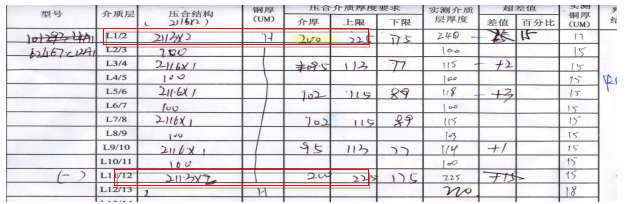 型号 介质层 压合结构 铜厚 压合介质厚度要求 实测介质层厚度 超差值 实测铜厚
(2116x2) (UM) 介厚 上限 下限 差值 百分比 (UM)
L1/2 2113x2 H 200 225 175 240 15 17
L2/3 100 100 15
L3/4 2116x1 95 113 77 115 +2 15
L4/5 100 100 15
L5/6 2116x1 102 115 89 118 +3 15
L6/7 100 100 15
L7/8 2116x1 102 115 89 115 15
L8/9 100 103 15
L9/10 2116x1 95 113 77 114 +1 15
L10/11 100 100 15
(一) L11/12 2113x2 200 225 175 225 15
L12/13 2 H 18